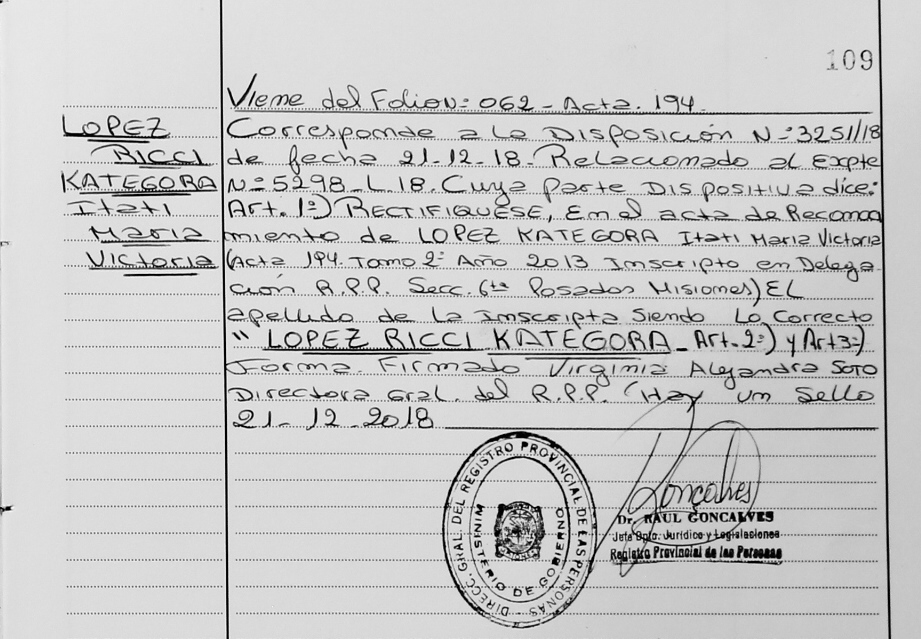 109
Viene del Folio Nº 062 - Acta. 194.
LOPEZ
RICCI
KATEGORA
Itati
Maria
Victoria
Corresponde a la Disposición Nº 3251/18
de fecha 21-12-18. Relacionado al Expte
Nº 5298-L.18. Cuya parte Dispositiva dice:
Art. 1º) RECTIFIQUESE, En el acta de Reconoci
miento de LOPEZ KATEGORA Itati Maria Victoria
(Acta 194. Tomo 2º Año 2013 Inscripto en Delega
ción R.P.P. Secc. 6ta Posadas Misiones) EL
apellido de la Inscripta Siendo Lo Correcto
" LOPEZ RICCI KATEGORA - Art. 2º) y Art 3º)
Forma. Firmado Virginia Alejandra SOTO
Directora Gral. del R.P.P. (Hay un Sello
21-12-2018
DIRECC. GRAL. DEL REGISTRO PROVINCIAL DE LAS PERSONAS
MINISTERIO DE GOBIERNO
Goncalves
Dr. RAUL GONCALVES
Jefe Dpto. Jurídico y Legislaciones
Registro Provincial de las Personas